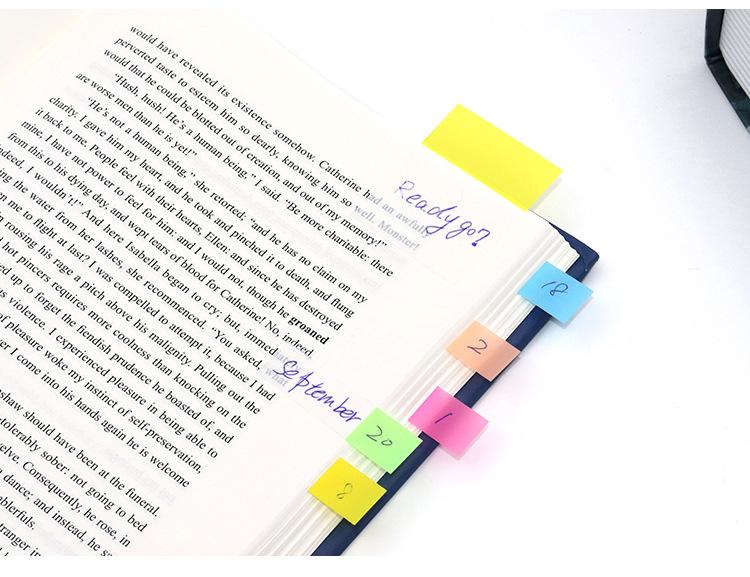 would have revealed its existence somehow. Catherine had an awfully
perverted taste to esteem him so dearly, knowing him so well. Monster!
would that he could be blotted out of creation, and out of my memory!"
"Hush, hush! He's a human being," I said. "Be more charitable: there
are worse men than he is yet!"
"He's not a human being," she retorted: "and he has no claim on my
charity. I gave him my heart, and he took and pinched it to death, and flung
it back to me. People feel with their hearts, Ellen: and since he has destroyed
mine, I have not power to feel for him: and I would not, though he groaned
from this to his dying day, and wept tears of blood for Catherine! No, indeed,
indeed, I wouldn't!" And here Isabella began to cry; but, immediately
the water from her lashes, she recommenced. "You asked, what
me to flight at last? I was compelled to attempt it, because I had
rousing his rage a pitch above his malignity. Pulling out the
hot pincers requires more coolness than knocking on the
up to forget the fiendish prudence he boasted of, and
violence. I experienced pleasure in being able to
pleasure woke my instinct of self-preservation,
I come into his hands again he is welcome
shaw should have been at the funeral.
tolerably sober: not going to bed
twelve. Consequently, he rose, in
dance; and instead, he
Ready go?
September
18
2
1
20
8